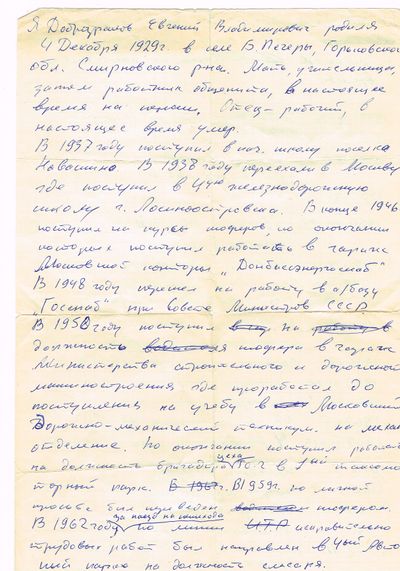 Я Добрадранов Евгений Владимирович родился
4 Декабря 1929г. в селе Б. Печеры, Горьковской
обл. Смирновского р-на. Мать, учительница,
затем работник общепита, в настоящее
время на пенсии. Отец - рабочий, в
настоящее время умер.
В 1937 году поступил в нач. школу поселка
Навашино. В 1938 году переехали в Москву
где поступил в 4ую железнодорожную
школу г. Лосиноостровска. В конце 1946
поступил на курсы шоферов, по окончании
которых поступил работать в гараж
Московской конторы „Донбассэнергоснаб"
В 1948 году перешел на работу в а/базу
„Госснаб" при Совете Министров СССР
В 1950 году поступил на работу в
должность шофера в гараж
Министерства строительного и дорожного
машиностроения, где проработал до
поступления на учебу в Московский
Дорожно-механический техникум. на механ
отделение. По окончании поступил работать
на должность бригадира цеха в 1ый таксомо
торный парк. В 1961г. В 1959г. по личной
просьбе был переведен шофером.
В 1962 году за наезд на пешехода по линии И.Т.Р исправительно
трудовых работ был направлен в 4ый Авто
ный парк на должность слесаря.